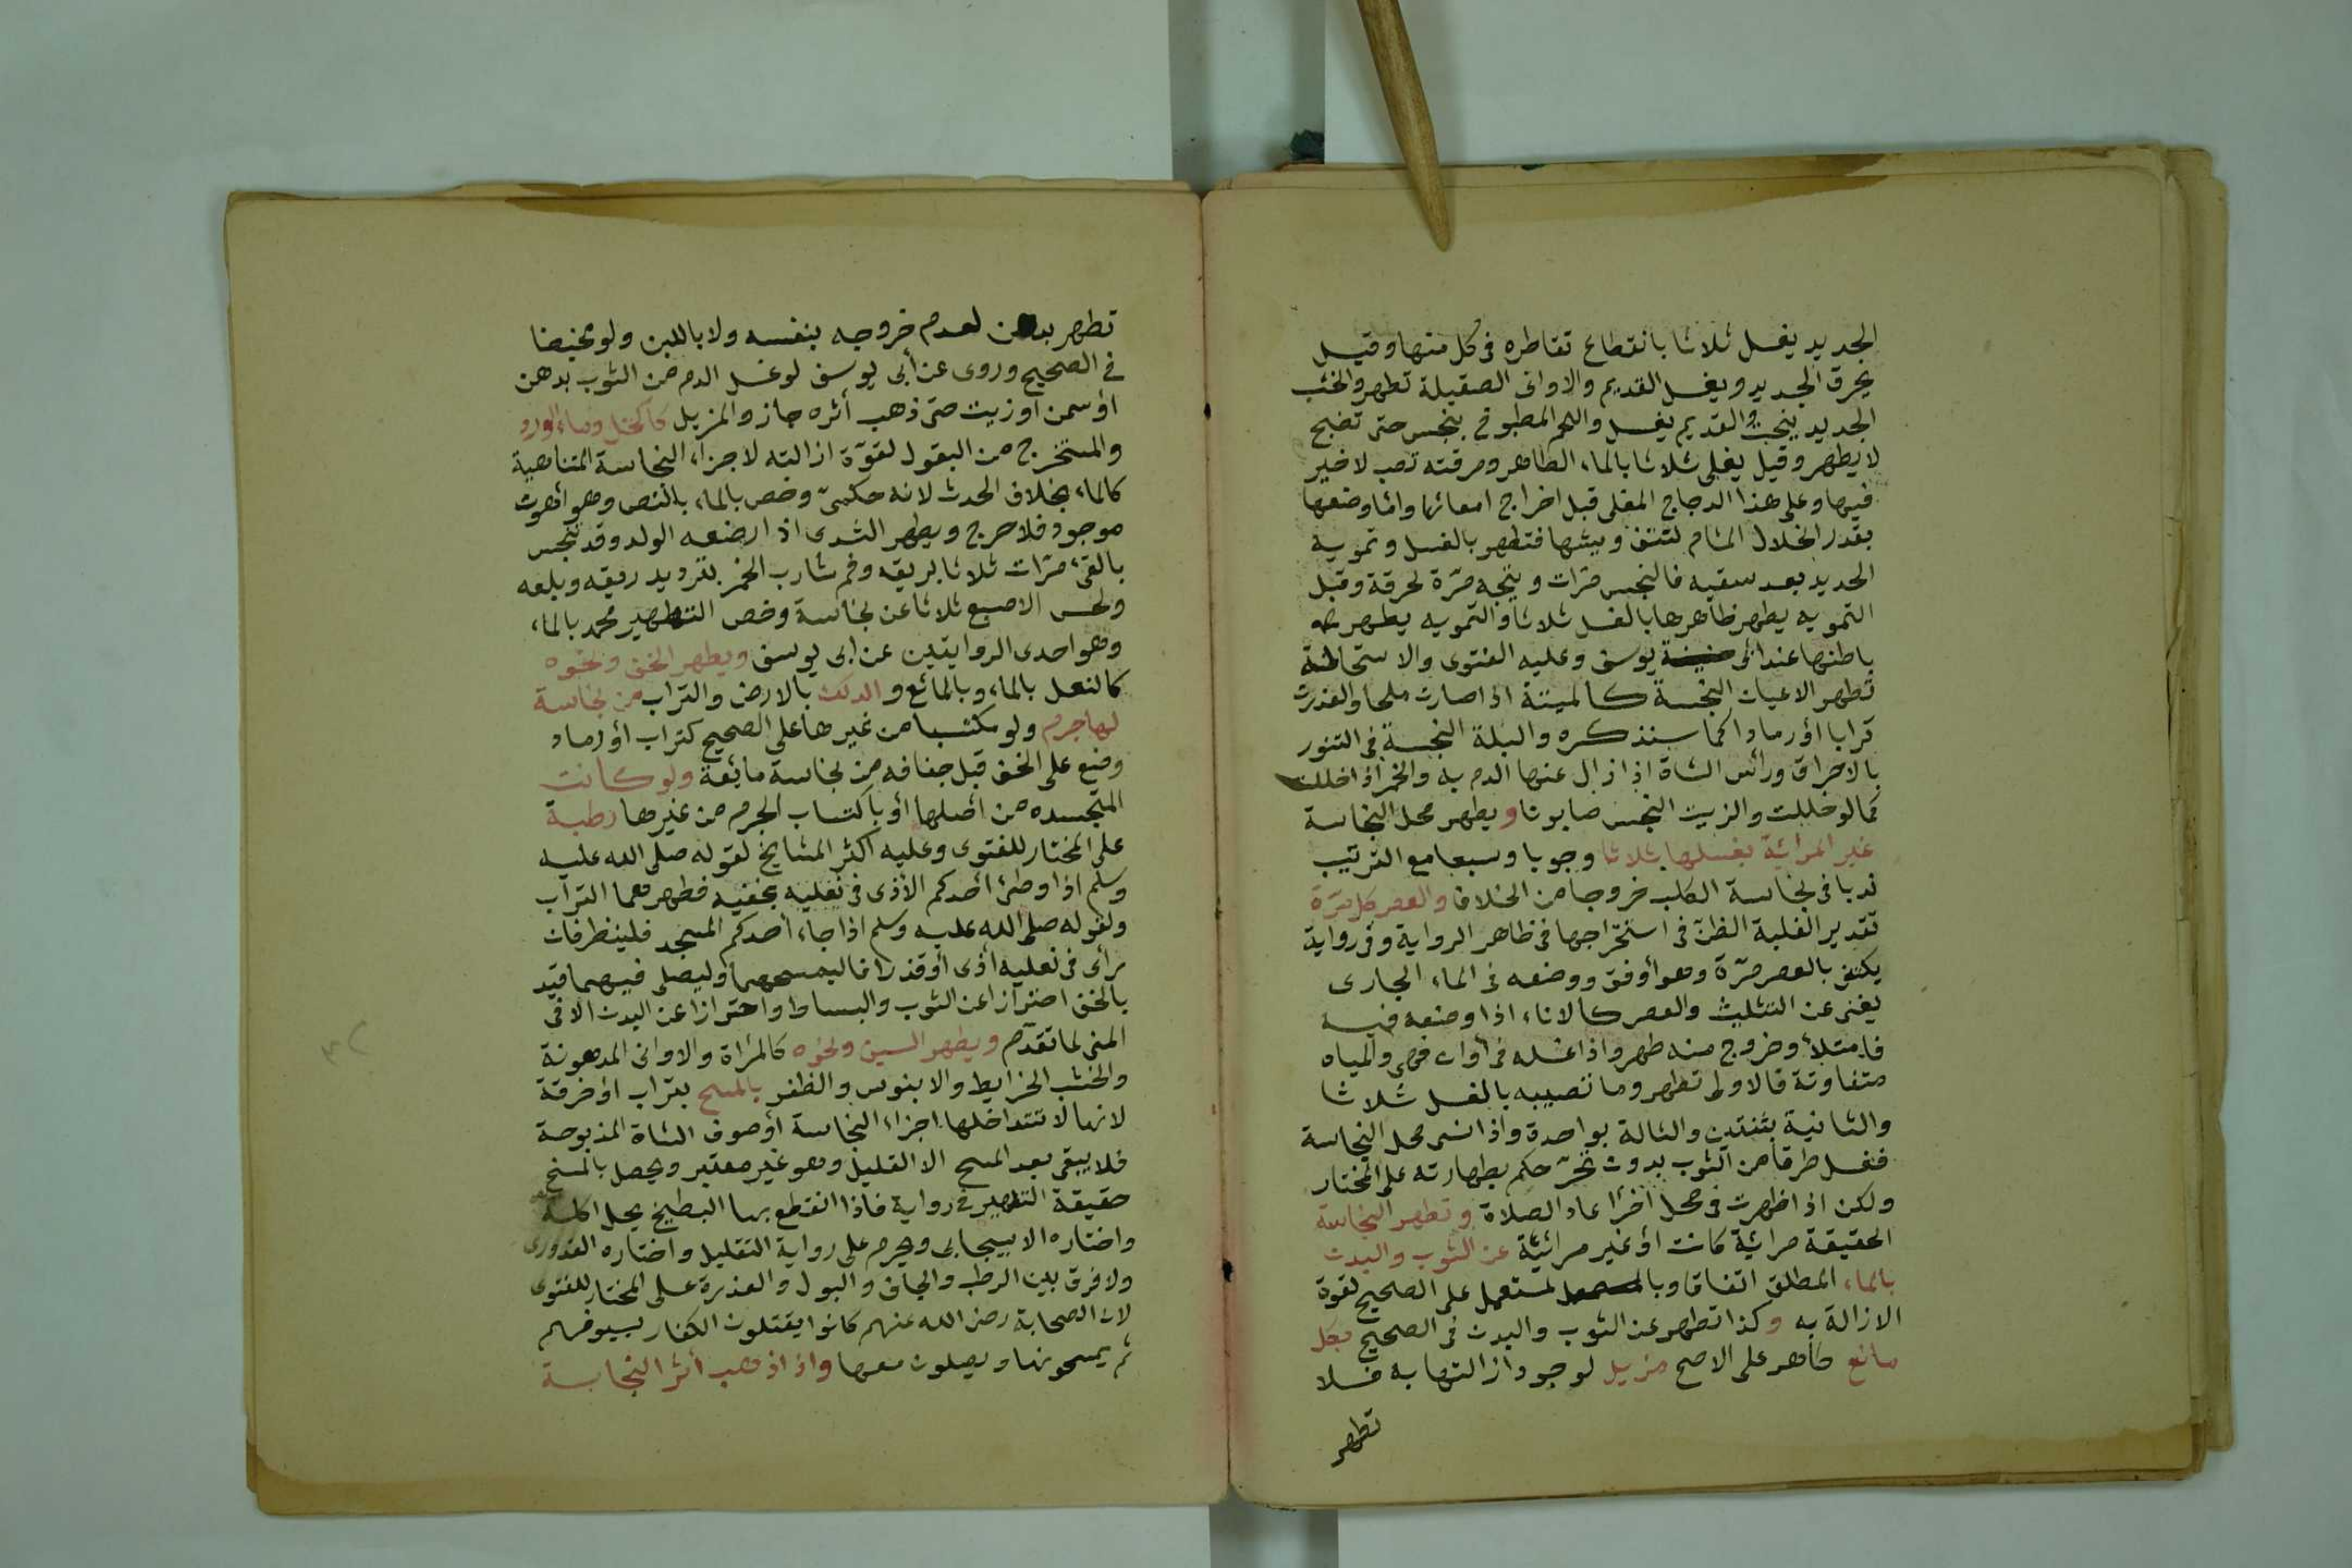 الجديد يغسل ثلاثا بانقطاع تقاطره فى كل منها وقيل
يحرق الجديد ويغسل القديم والاوانى الصقيلة تطهر والخشب
الجديد ينحت والقديم يغسل واللحم المطبوخ بنجس حتى نضج
لا يطهر وقيل يغلى ثلاثا بالماء الطاهر ومرقته تصب لا خير
فيها وعلى هذا الدجاج المغلى قبل اخراج امعائها واما وضعها
بقدر انحلال المسام لنتف ريشها فتطهر بالغسل وتمويه
الحديد بعد سقيه فالنجس مرّات وينجه مرّة لحرقة وقبل
التمويه يطهر ظاهرها بالغسل ثلاثا والتمويه يطهر
باطنها عند ابى يوسف وعليه الفتوى والاستحالة
تطهر الاعيان النجسة كالميتة اذا صارت ملحا والعذرت
ترابا أو رمادا كما سنذكره والبلة النجسة فى التنور
بالاحراق ورأس الشاة اذا زال عنها الدم به والخمر اذا خللت
كما لو خللت والزيت النجس صابونا ويطهر محل النجاسة
غير المرائية بغسلها ثلاثا وجوبا وسبعا مع التريتيب
ندبا فى نجاسة الكلب خروجا من الخلاف والعصر كل مرّة
تقدير الغلبة الظن فى استخراجها فى ظاهر الرواية وفى رواية
يكتفى بالعصر مرّة وهو أوفق ووضعه فى الماء الجارى
يغنى عن التثليث والعصر كالاناء اذا وضعه فيه
فامتلأ وخروج منه طهر واذا غسله فى أوان فهى والمياه
متفاوتة فالاولى تطهر وما تصيبه بالغسل ثلاثا
والثانية بثنتين والثالة بواحدة واذا نسى محل النجاسة
فغسل طرفا من الثوب بدون تحرّ حكم بطهارته على المختار
ولكن اذا ظهرت فى محل آخر أعاد الصلاة وتطهر النجاسة
الحقيقة مرائية كانت أو غير مرائيّة عن الثوب والبدن
بالماء المطلق اتفاقا وبا لمستعمل على الصحيح لقوة
الازالة به وكذا تطهر عن الثوب والبدن فى الصحيح بكل
مائع طاهر على الاصح مزيل لوجود ازالتها به فلا
تطهر
تطهر بدهن لعدم خروجه بنفسه ولا باللبن ولو مخيضا
فى الصحيح وروى عن أبى يوسف لو غسل الدم من الثوب بدهن
أو سمن او زيت حتى ذهب أثره جاز والمزيل كالخل وماء الورد
والمستخرج من البقول لقوّة ازالته لاجزاء النجاسة المتناهية
كالماء بخلاف الحدث لانه حكمىّ وخص بالماء بالنص وهو أهون
موجود فلا حرج ويطهر الثدى اذا ارضعه الولد وقد تنجس
بالقئ مرّات ثلاثا بريقه وفم شارب الخمر بترديد ريقه وبلعه
ولحس الاصبع ثلاثا عن نجاسة وخص التطهير محمد بالماء
وهو احدى الروايتين عن ابى يوسف ويطهر الخف ونحوه
كالنعل بالماء وبالمائع والدلك بالارض والتراب من نجاسة
لها جرم ولو مكتسبا من غيرها على الصحيح كتراب أو رماد
وضع على الخف قبل جفافه من نجاسة مائعة ولو كانت
المتجسده من أصلها أو باكتساب الجرم من غيرها رطبة
على المختار للفتوى وعليه أكثر المشايخ لقوله صلى الله عليه
وسلم اذا وطئ أحدكم الأذى فى نعليه بخفيه فطهرهما التراب
ولقوله صلى الله عليه وسلم اذا جاء أحدكم المسجد فلينظر فان
رأى فى نعليه أذى أو قذرا فاليمسحهما وليصلى فيهما قيد
بالخف احترازا عن الثوب والبساط واحترازا عن البدن الا فى
المنى لما تقدّم ويطهر السيف ونحوه كالمرأة والاوانى المدهونة
والخشب الخرايط والابنوس والظفر بالمسح بتراب أو خرقة
لانها لا تتداخلها اجزاء النجاسة أو صوف الشاة المذبوحة
فلا يبقى بعد المسح الا القليل وهو غير معتبر ويحصل بالمسح
حقيقة التطهير فى رواية فاذا انقطع بها البطيخ يحل اكله
واختاره الابيجابى ويحرم على رواية التقليل واختاره القدورى
ولا فرق بين الرطب والجاف والبول والعذرة على المختار للفتوى
لان الصحابة رضى الله عنهم كانوا يقتلون الكفار بسيوفهم
ثم يمسحونها ويصلون معها واذا ذهب أثر النجاسة